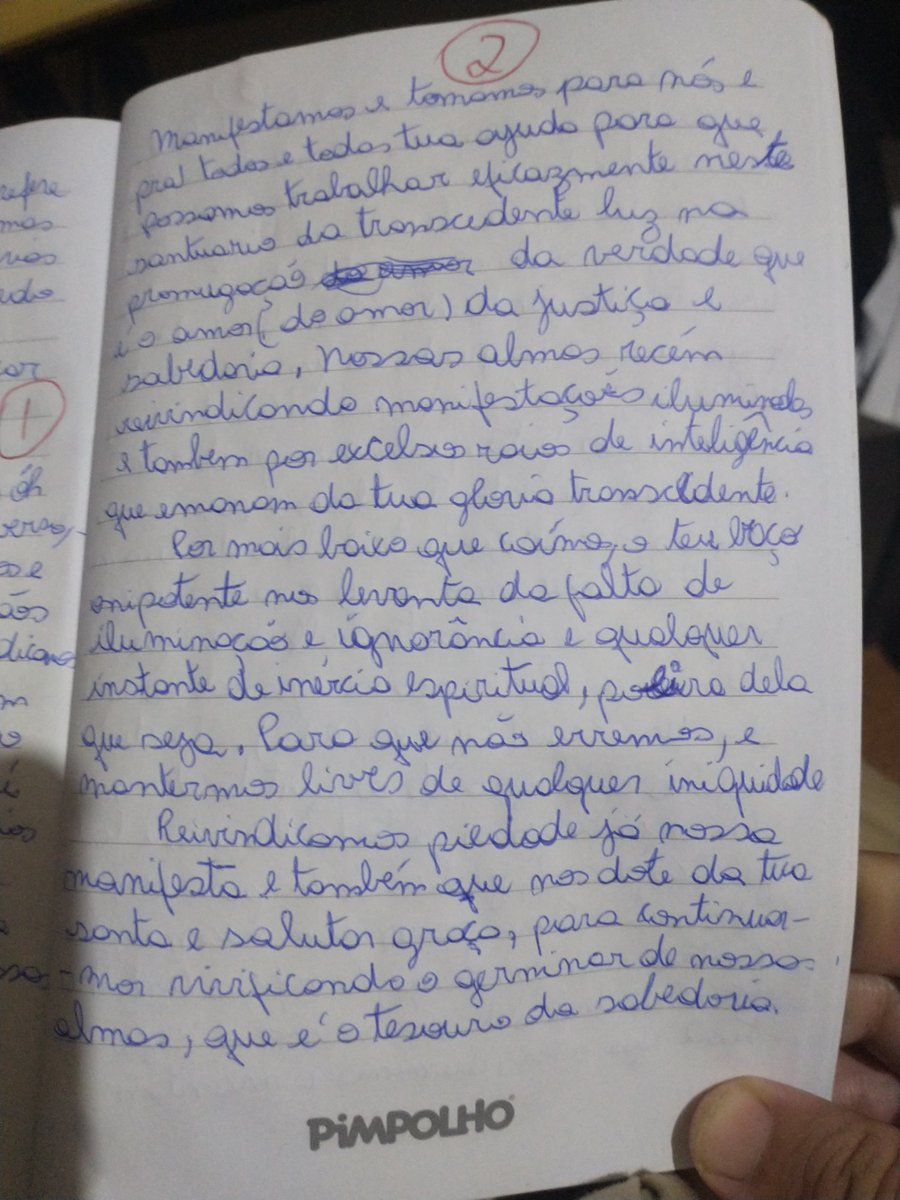 2
Manifestamos e tomamos para nós e
pra/ todos e todas tua ajuda para que
possamos trabalhar eficazmente neste
santuario da transcedente luz na
promugação da verdade que
é o amor (do amor) da justiça e
sabedoria, nossas almas recém
reivindicando manifestações iluminadas
e também por excelsos raios de inteligência
que emanam da tua gloria transcedente.
Por mais baixo que caímos, o teu braço
onipotente nos levanta da falta de
iluminação e ignorância e qualquer
instante de inércia espiritual, dela
que seja. Para que não erremos, e
mantermos livres de qualquer iniquidade
Reivindicamos piedade já nossa
manifesta e também que nos dote da tua
santa e salutar graça, para continuar-
-mos vivificando o germinar de nossas
almas, que é o tesouro da sabedoria.
PIMPOLHO
refere
mas
ndo
1
óh
verso,
ãos
dicamos
m
o
é